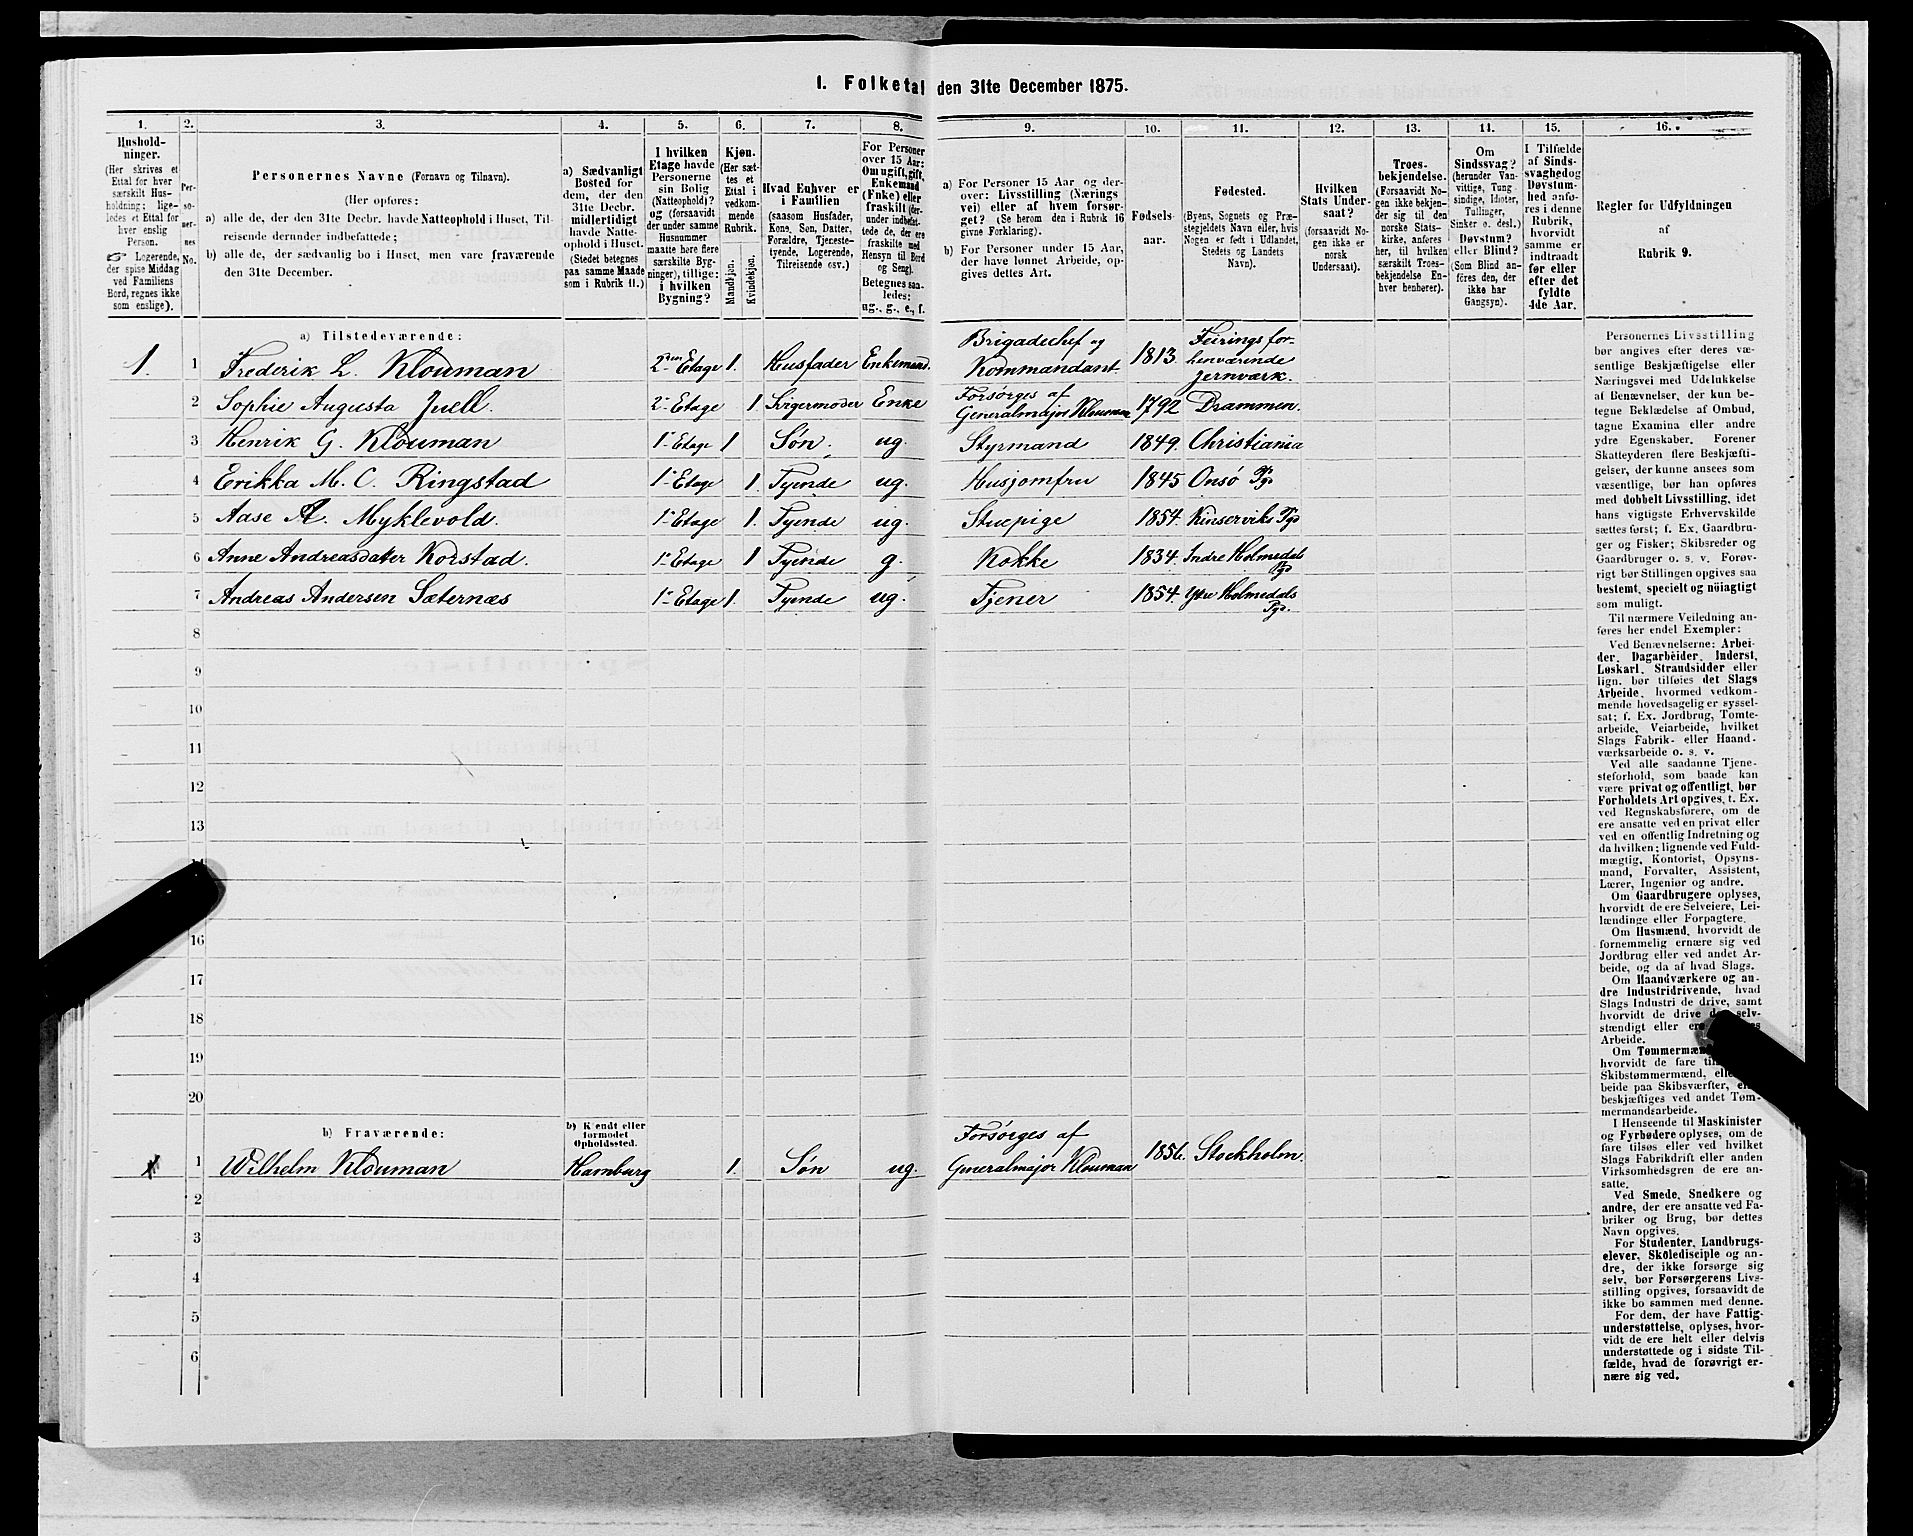 1. Folketal den 31te December 1875.
1. 2. 3. 4. 5. 6. 7. 8. 9. 10. 11. 12. 13. 14. 15. 16.
Hushold-
ninger.
(Her skrives et
Ettal for hver
særskilt Hus-
holdning; lige-
ledes et Ettal for
hver enslig
Person.
☞ Logerende,
der spise Middag
ved Familiens
Bord, regnes ikke
som enslige).
Per-
so-
ner-
nes
No.
Personernes Navne (Fornavn og Tilnavn).
(Her opføres:
a) alle de, der den 31te Decbr. havde Natteophold i Huset, Til-
reisende derunder indbefattede;
b) alle de, der sædvanlig bo i Huset, men vare fraværende
den 31te December.
a) Sædvanligt
Bosted for
dem, der den
31te Decbr.
midlertidigt
havde Natte-
ophold i Huset.
(Stedet betegnes
paa samme Maade
som i Rubrik 11.)
I hvilken
Etage havde
Personerne
sin Bolig
(Natteophold)?
og (forsaavidt
der under samme
Husnummer
maatte høre flere
særskilte Byg-
ninger), tillige:
i hvilken
Bygning?
Kjøn.
(Her sæt-
tes et
Ettal i
vedkom-
mende
Rubrik.
Mandkjøn.
Kvindekjøn.
Hvad Enhver er
i Familien
(saasom Husfader,
Kone, Søn, Datter,
Forældre, Tjeneste-
tyende, Logerende,
Tilreisende osv.)
For Personer
over 15 Aar:
Om ugift, gift,
Enkemand
(Enke) eller
fraskilt (der-
under indbefat-
tede de, der ere
fraskilte med
Hensyn til Bord
og Seng).
Betegnes saa-
ledes:
ug., g., e., f.
a) For Personer 15 Aar og der-
over: Livsstilling (Nærings
vei) eller af hvem forsør-
get? (Se herom den i Rubrik 16
givne Forklaring).
b) For Personer under 15 Aar,
der have lønnet Arbeide, op-
gives dettes Art.
Fødsels-
aar.
Fødested.
(Byens, Sognets og Præ-
stegjeldets Navn eller, hvis
Nogen er født i Udlandet,
Stedets og Landets
Navn).
Hvilken
Stats Under-
saat?
(forsaavidt No-
gen ikke er
norsk
Undersaat).
Troes-
bekjendelse.
(Forsaavidt No-
gen ikke bekjen-
der sig til den
norske Stats-
kirke, anføres
her, til hvilken
særskilt Troes-
bekjendelse En-
hver henhører).
Om
Sindssvag?
(herunder Van-
vittige, Tung-
sindige, Idioter,
Tullinger,
Sinker o. desl.)
Døvstum?
eller Blind?
(Som Blind an-
føres den, der
ikke har
Gangsyn).
I Tilfælde
af Sinds-
svaghed og
Døvstum-
hed anfø-
res i denne
Rubrik,
hvorvidt
samme er
indtraadt
før eller
efter det
fyldte
4de Aar.
Regler for Udfyldningen
af
Rubrik 9.
a) Tilstedeværende:
1. 1 Frederik L. Klouman 2den Etage 1. Husfader Enkemand. Brigadechef og Kommandant 1813. Feirings for-
henværende
Jernværk.
2 Sophie Augusta Juell. 2- Etage 1. Svigermoder Enke Forsørges af Generalmajor Klouman 1792 Drammen.
3 Henrik G. Klouman 1- Etage 1 Søn. ug. Styrmand 1849. Christiania
4 Erikka M. C. Ringstad 1- Etage 1. Tyende ug. Husjomfru 1845 Onsø Pgd
5 Aase A. Myklevold. 1- Etage 1. Tyende ug. Stuepige 1854. Kinserviks Pgd
6 Anne Andreasdatter Korstad. 1- Etage 1 Tyende g. Kokke 1834. Indre Holmedals Pgd
7 Andreas Andersen Sæternæs 1- Etage 1. Tyende ug. Tjener 1854. Ytre Holmedals Pgd.
8
9
10
11
12
13
16
17
18
19
20
b) Fraværende:
b) Kjendt eller
formodet
Opholdssted.
1 Wilhelm Klouman Hamburg 1. Søn ug. Forsørges af Generalmajor Klouman 1856. Stockholm.
2
3
4
5
6
Personernes Livsstilling
bør angives efter deres væ-
sentlige Beskjæftigelse eller
Næringsvei med Udelukkelse
af Benævnelser, der kun be-
tegne Beklædelse af Ombud,
tagne Examina eller andre
ydre Egenskaber. Forener
Skatteyderen flere Beskjæfti-
gelser, der kunne ansees som
væsentlige, bør han opføres
med dobbelt Livsstilling, idet
hans vigtigste Erhvervskilde
sættes først; f. Ex. Gaardbru-
ger og Fisker; Skibsreder og
Gaardbruger o. s. v. Forøv-
rigt bør Stillingen opgives saa
bestemt, specielt og nöiagtigt
som muligt.
Til nærmere Veiledning an-
føres her endel Exempler:
Ved Benævnelserne: Arbei-
der, Dagarbeider, Inderst,
Løskarl, Strandsidder eller
lign. bør tilføies det Slags
Arbeide, hvormed vedkom-
mende hovedsagelig er syssel-
sat; f. Ex. Jordbrug, Tomte-
arbeide, Veiarbeide, hvilket
Slags Fabrik- eller Haand-
værksarbeide o. s. v.
Ved alle saadanne Tjene-
steforhold, som baade kan
være privat og offentligt, bør
Forholdets Art opgives, t. Ex.
ved Regnskabsførere, om de
ere ansatte ved en privat eller
ved en offentlig Indretning og
da hvilken; lignende ved Fuld-
mægtig, Kontorist, Opsyns-
mand, Forvalter, Assistent,
Lærer, Ingeniør og andre.
Om Gaardbrugere oplyses,
hvorvidt de ere Selveiere, Lei-
lændinge eller Forpagtere.
Om Husmænd, hvorvidt de
fornemmelig ernære sig ved
Jordbrug eller ved andet Ar-
beide, og da af hvad Slags.
Om Haandværkere og an-
dre Industridrivende, hvad
Slags Industri de drive, samt
hvorvidt de drive selv-
stændigt eller
Arbeide.
Om
hvorvidt de fare
Skibstømmermænd,
beide paa Skibsværfter,
beskjæftiges ved andet Tøm-
mermandsarbeide.
I Henseende til Maskinister
og Fyrbødere oplyses, om de
fare tilsøs eller ved hvilket
Slags Fabrikdrift eller anden
Virksomhedsgren de ere an-
satte.
Ved Smede, Snedkere og
andre, der ere ansatte ved Fa-
briker og Brug, bør dettes
Navn opgives.
For Studenter, Landbrugs-
elever, Skoledisciple og an-
dre, der ikke forsørge sig
selv, bør Forsørgerens Livs-
stilling opgives, forsaavidt de
ikke bo sammen med denne.
For dem, der have Fattig-
understøttelse, oplyses, hvor-
vidt de ere helt eller delvis
understøttede og i sidste Til-
fælde, hvad de forøvrigt er-
nære sig ved.